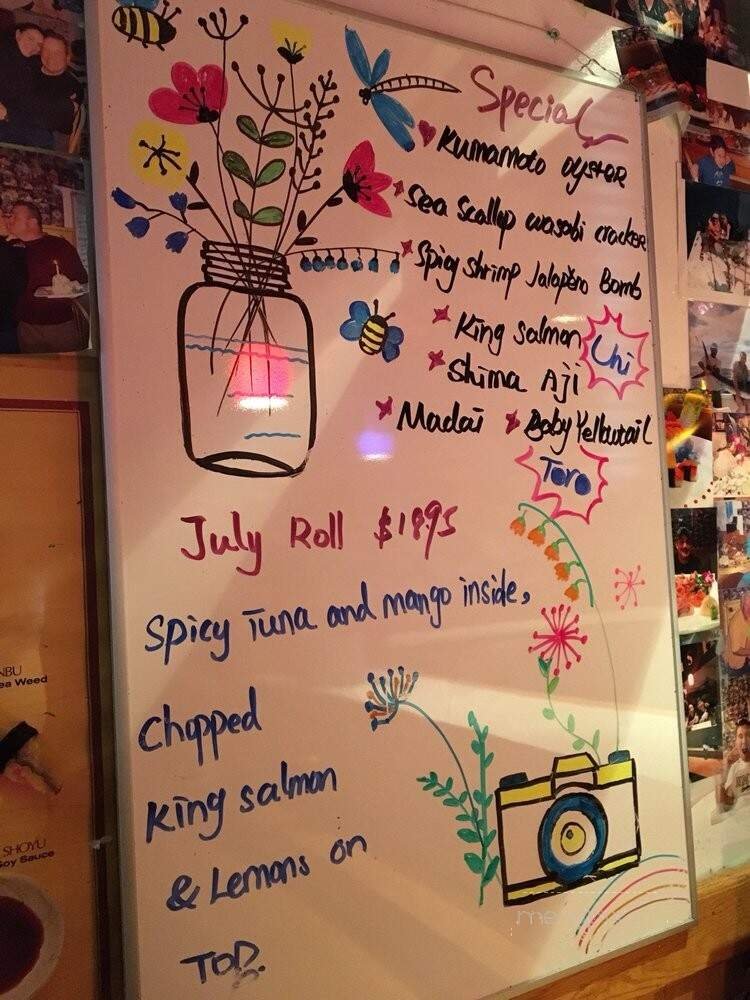 Special
Kumamoto oyster
Sea Scallop wasabi cracker
Spicy shrimp Jalapeno Bomb
King Salmon
Uni
Shima Aji
Madai
Baby Yellowtail
Toro
July Roll $18.95
Spicy Tuna and mango inside,
Chopped
King salmon
& Lemons on
TOP.
NBU
ea Weed
SHOYU
oy Sauce